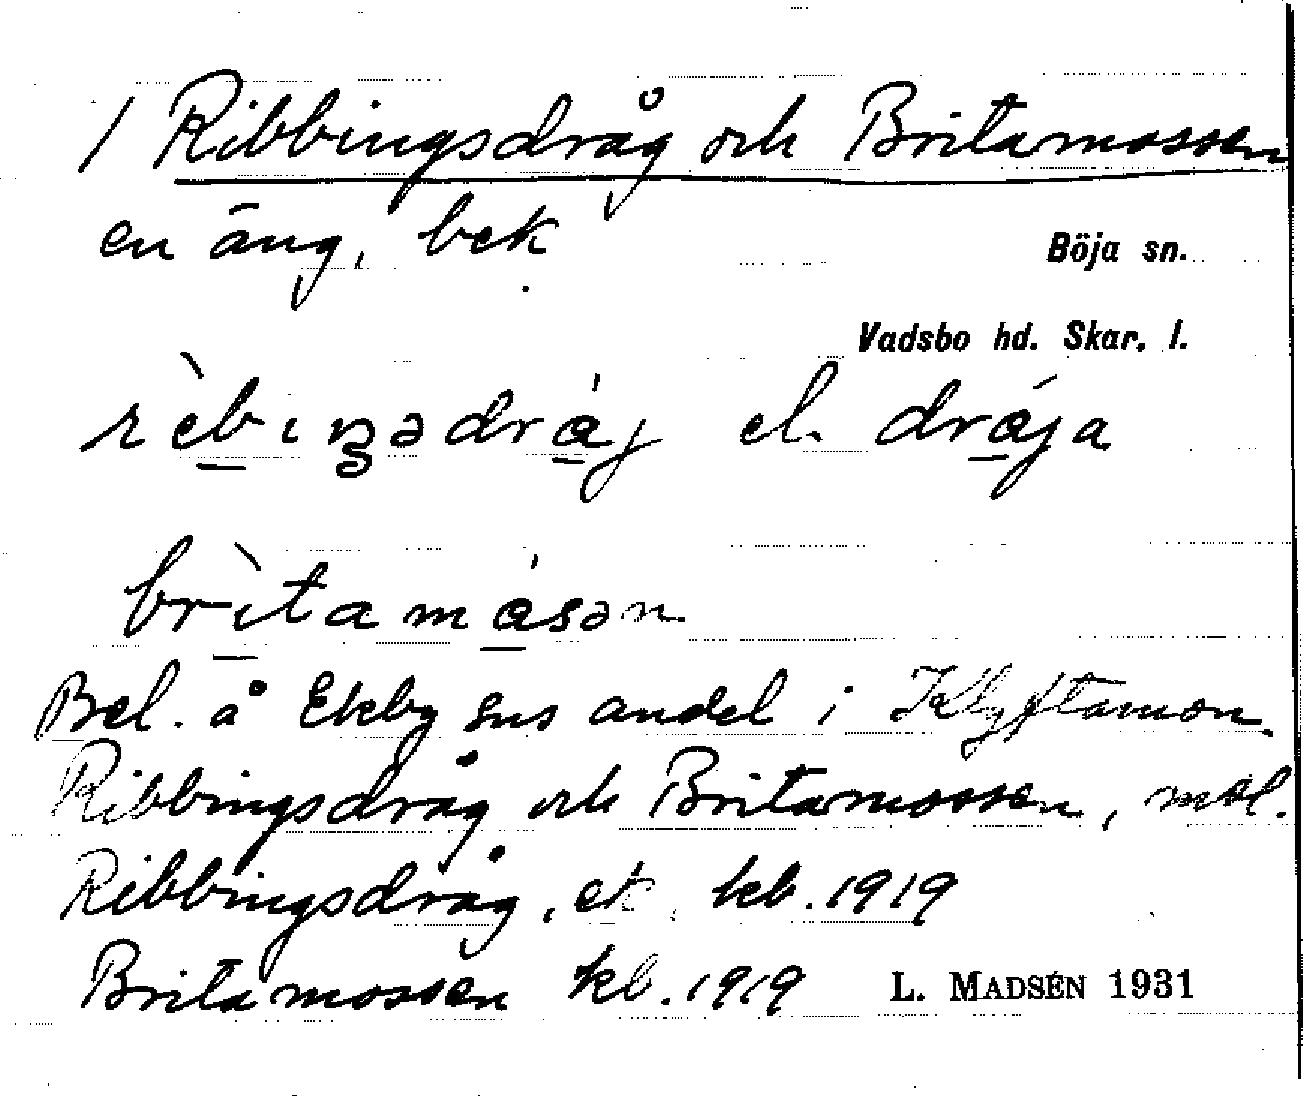 / Ribbingsdråg och Britamossen
en äng, bek.
Böja sn.
Vadsbo hd. Skar. l.
rèbıŋsədrág el. drága
brìtamásən
Bel. å Ekby sns andel i Klyftamon.
Ribbingsdråg och Britamossen,
Ribbingsdråg, kb. 1919
Britamossen kb. 1919
L. MADSÉN 1931